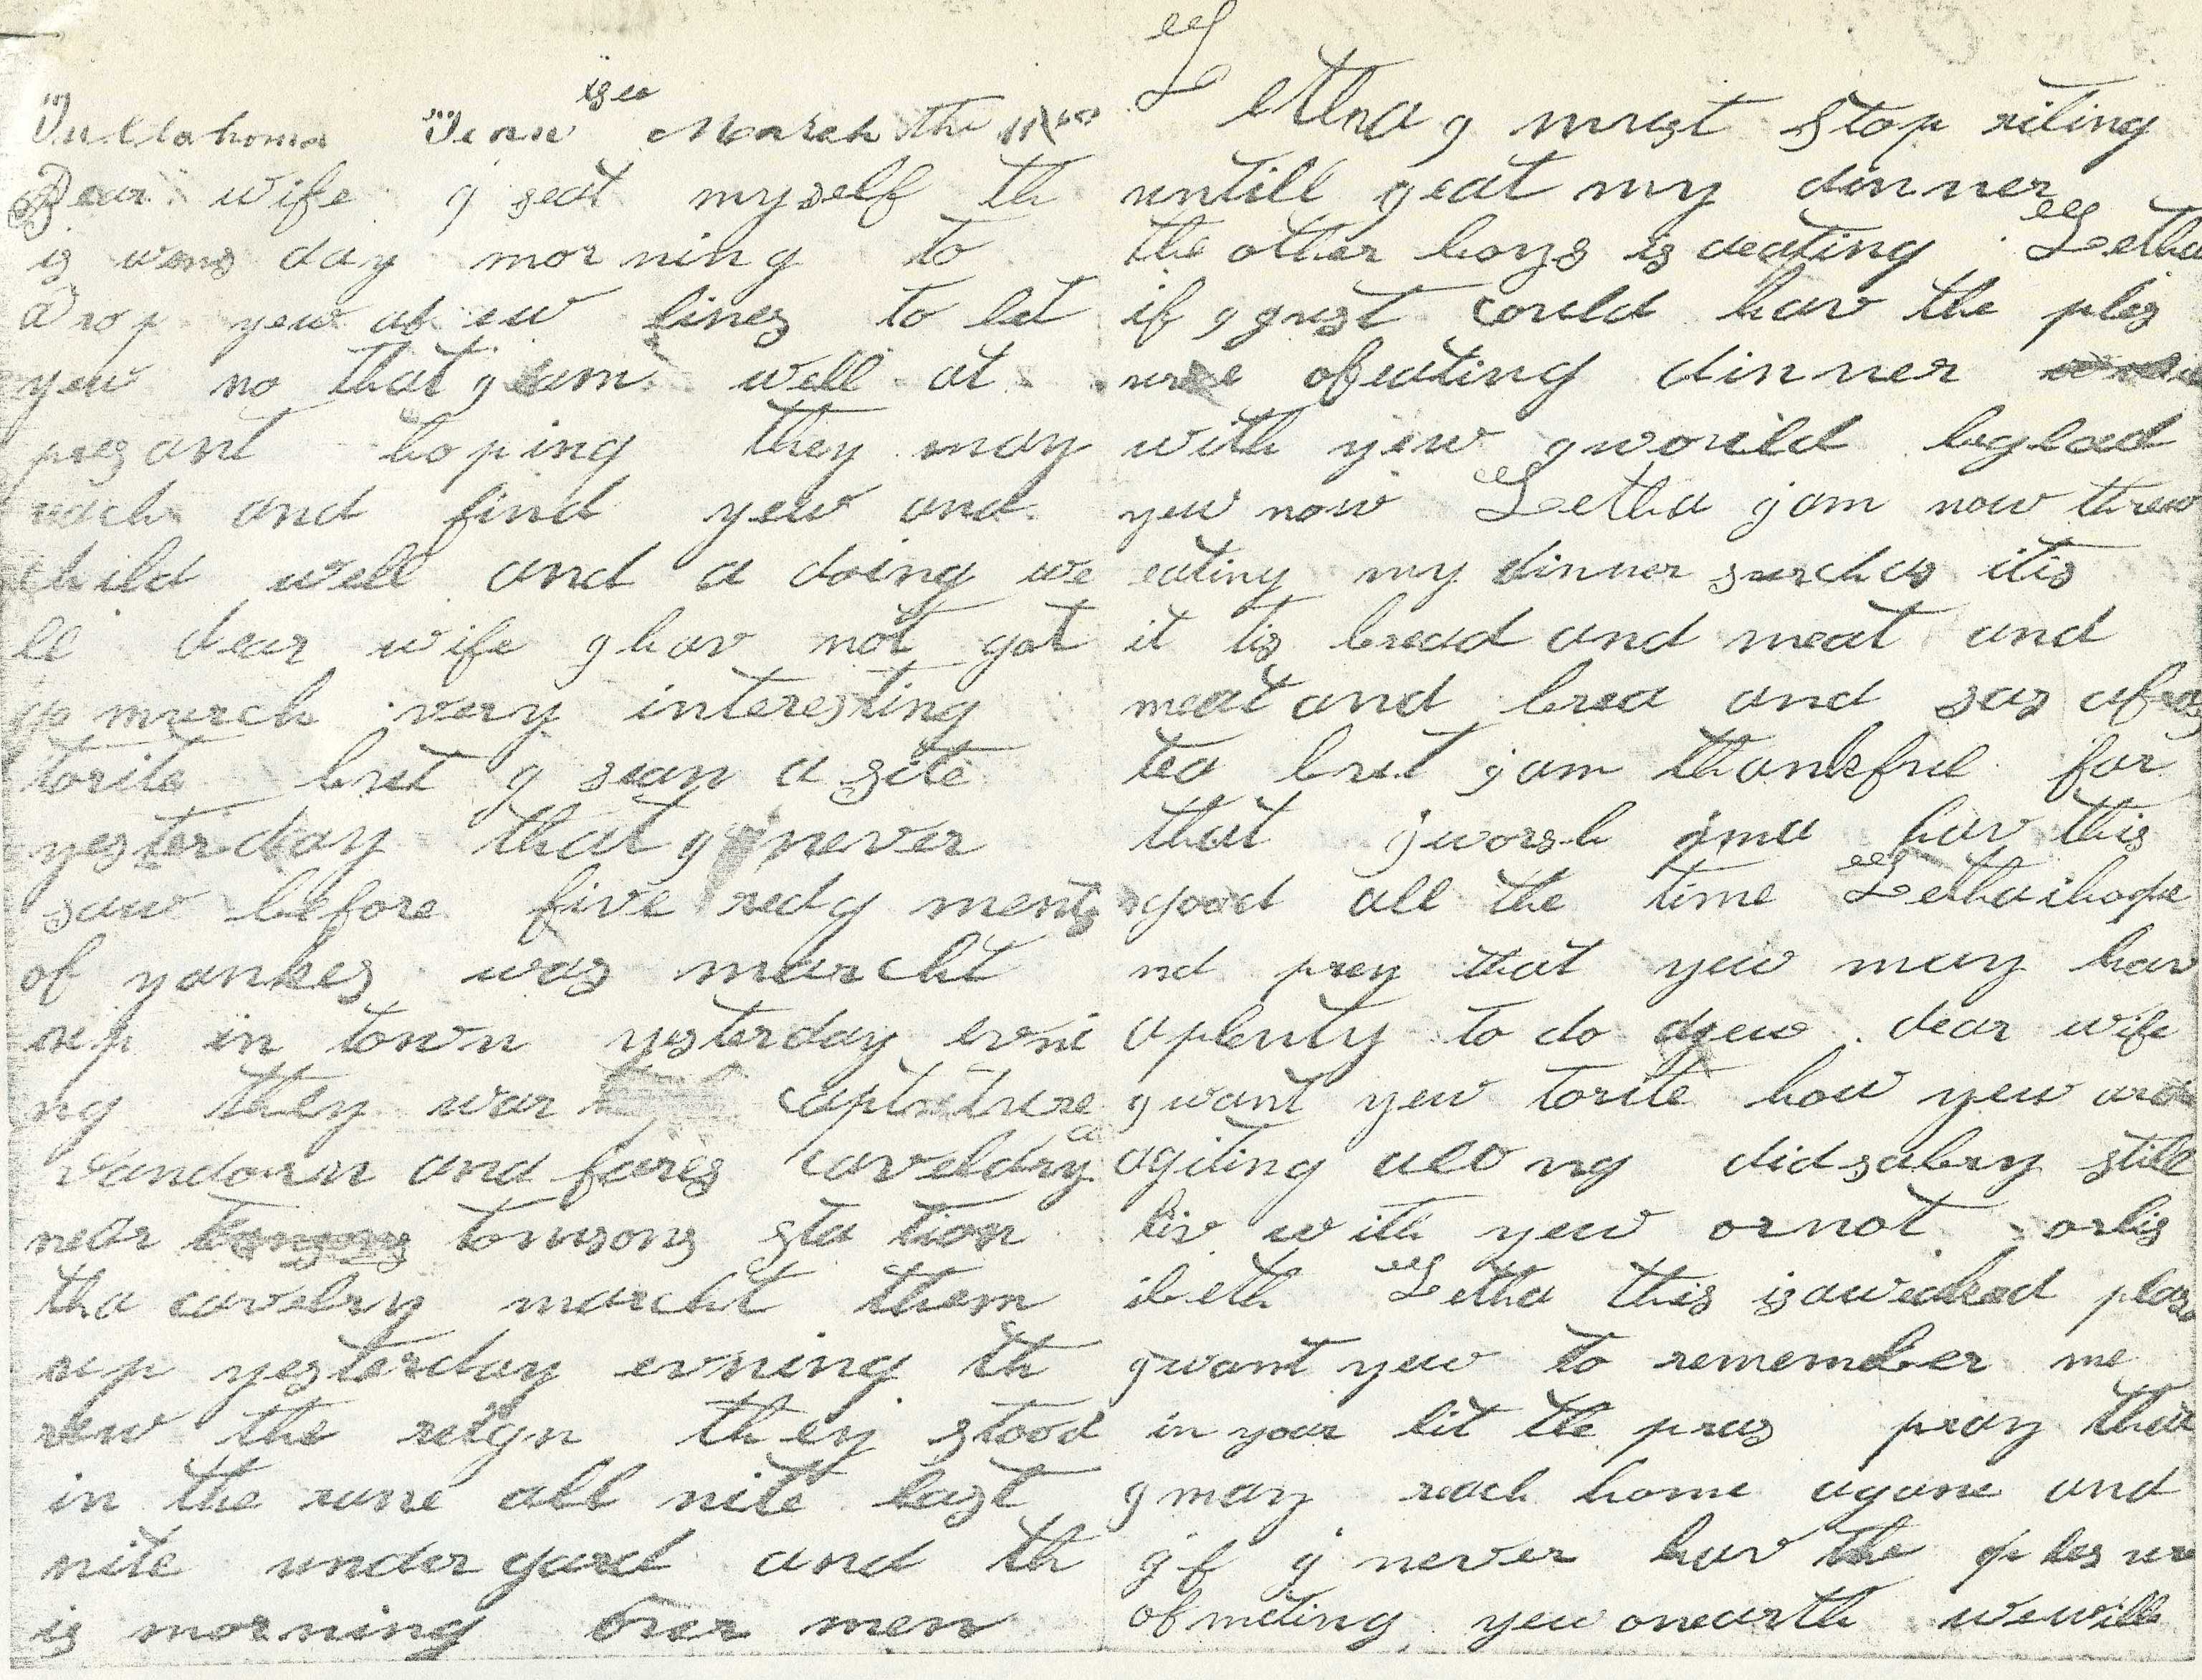 Tullahoma Tenn March the 11
Dear wife g seat myself th
is wens day morning to
drop yew a few lines to let
yew no that g am well at
preszant hoping they may
reach and find yew and
child well and a doing we
ll dear wife g hav not got
murch very interesting
to rite but g sean a site
yesterday that g never
saw before five redg ments
of yankes was marcht
up in town yesterday evni
ng they war capture
vandorn and caveldry
near tomsons sta tion
tha cavelry marcht them
up yesterday evning th
rew the reign they stood
in the rane all nite last
nite under gard and th
is morning over men
Letha g must stop riting
untill g eat my dinner
the other boys is aeating Letha
if g gust could hav the ples
ure of eating dinner
with yew g would be glad
yew now Letha g am now threw
eating my dinner surch as it is
it tis bread and meat and
meat and brea and sas afras
tea but g am thankful for
that g worsh may hav this
good all the time Letha i hope
nd prey that yew may hav
a plenty to do yew dear wife
g want yew to rite how yew are
a giting along did sabry still
liv with yew or not or lis
ibeth Letha this is a wicked plase
g want yew to remember me
in your lit tle pras pray that
g may reach home agane and
gf g never hav the ples ure
of meting yew on earth we will